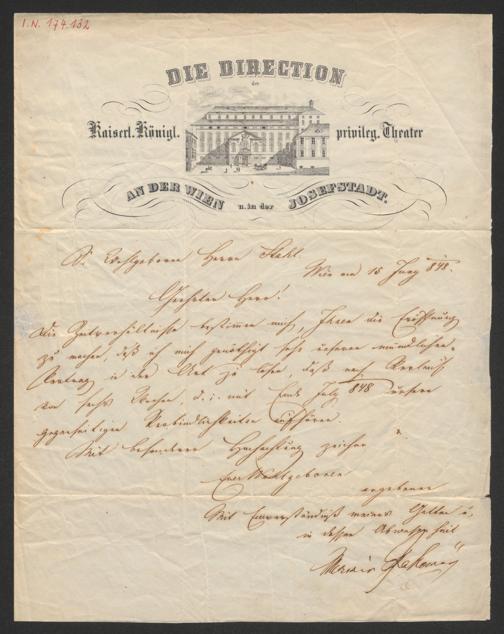 I.N. 174.132
DIE DIRECTION
der
Kaiserl. Königl. privileg. Theater
AN DER WIEN u. in der JOSEFSTADT.
Sr Wohlgeboren Herrn Stahl.
Wien am 15 Juny 848.
Geehrter Herr!
Die Zeitverhältnisse bestimmen mich, Ihnen die Eröffnung
zu machen, daß ich mich genöthigt sehe unseren mündlichen
Vertrag in der Art zu lösen, daß nach Verlauf
von sechs Wochen, d. i. mit Ende July 848 unsere
gegenseitigen Verbindlichkeiten aufhören.
Mit besonderer Hochachtung zeichne
Euer Wohlgeboren
ergebener
Mit Einverständniß meines Gatten u.
in dessen Abwesenheit